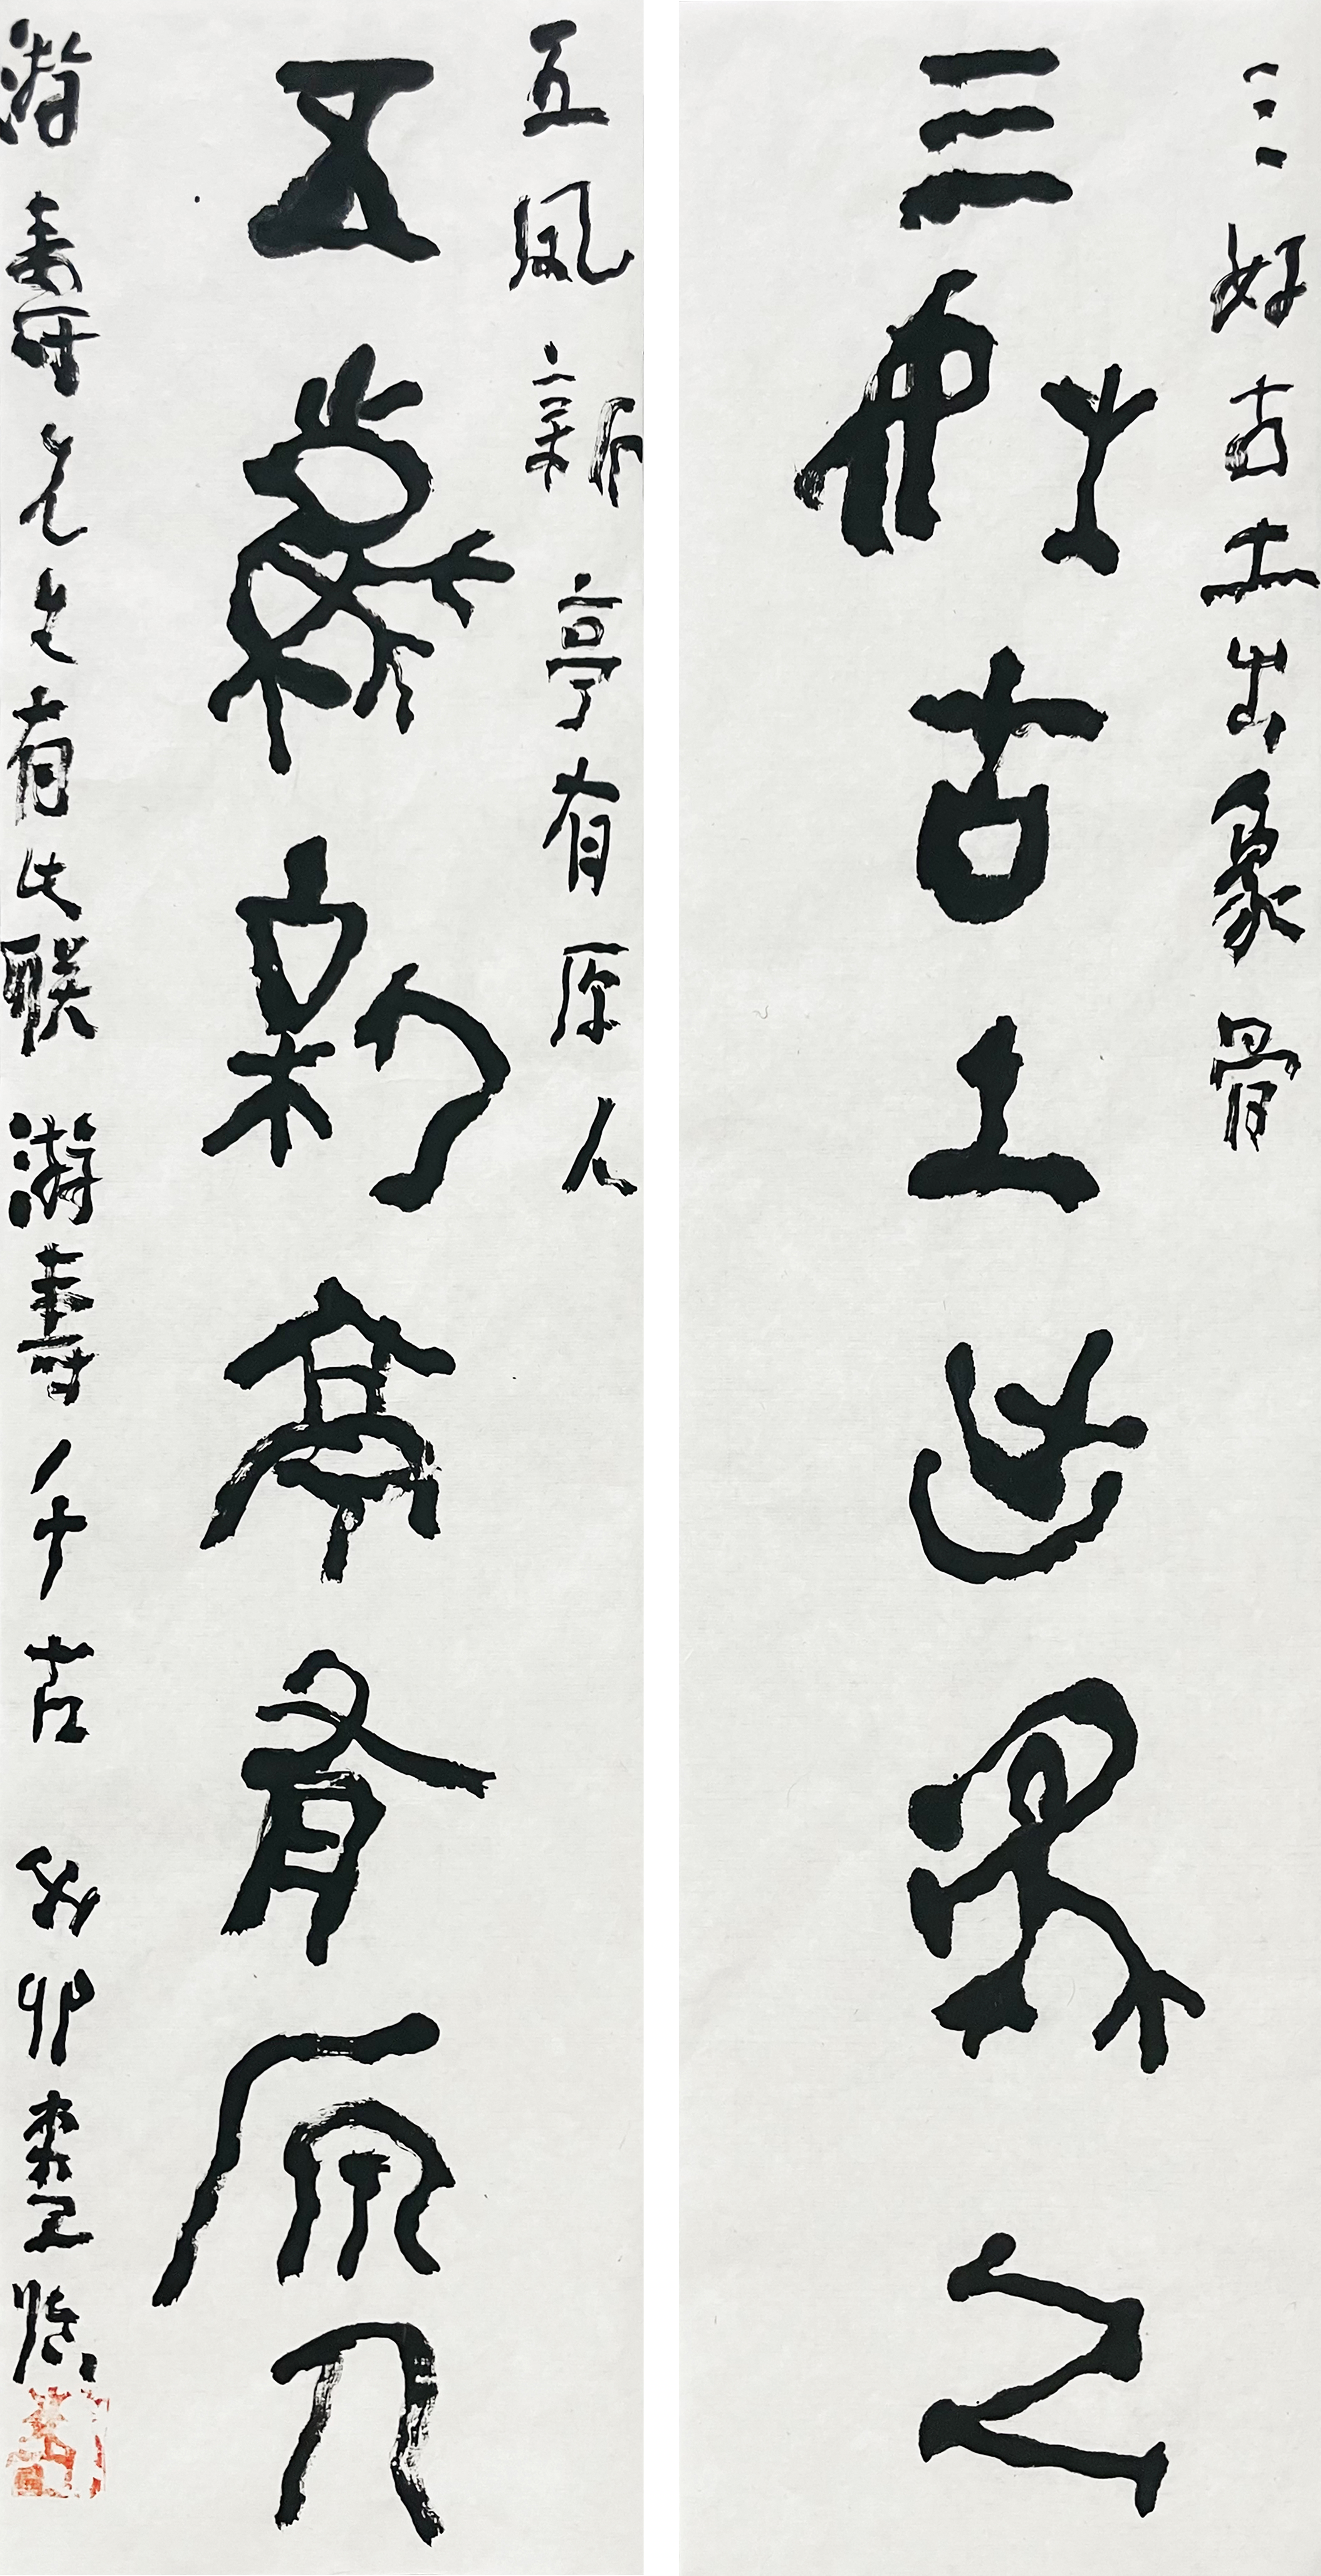 三好古土出象骨
三好古土出象骨
五凤新亭有原人
五鳳新亭有原人
游壽先生有此联 游壽千古 癸卯